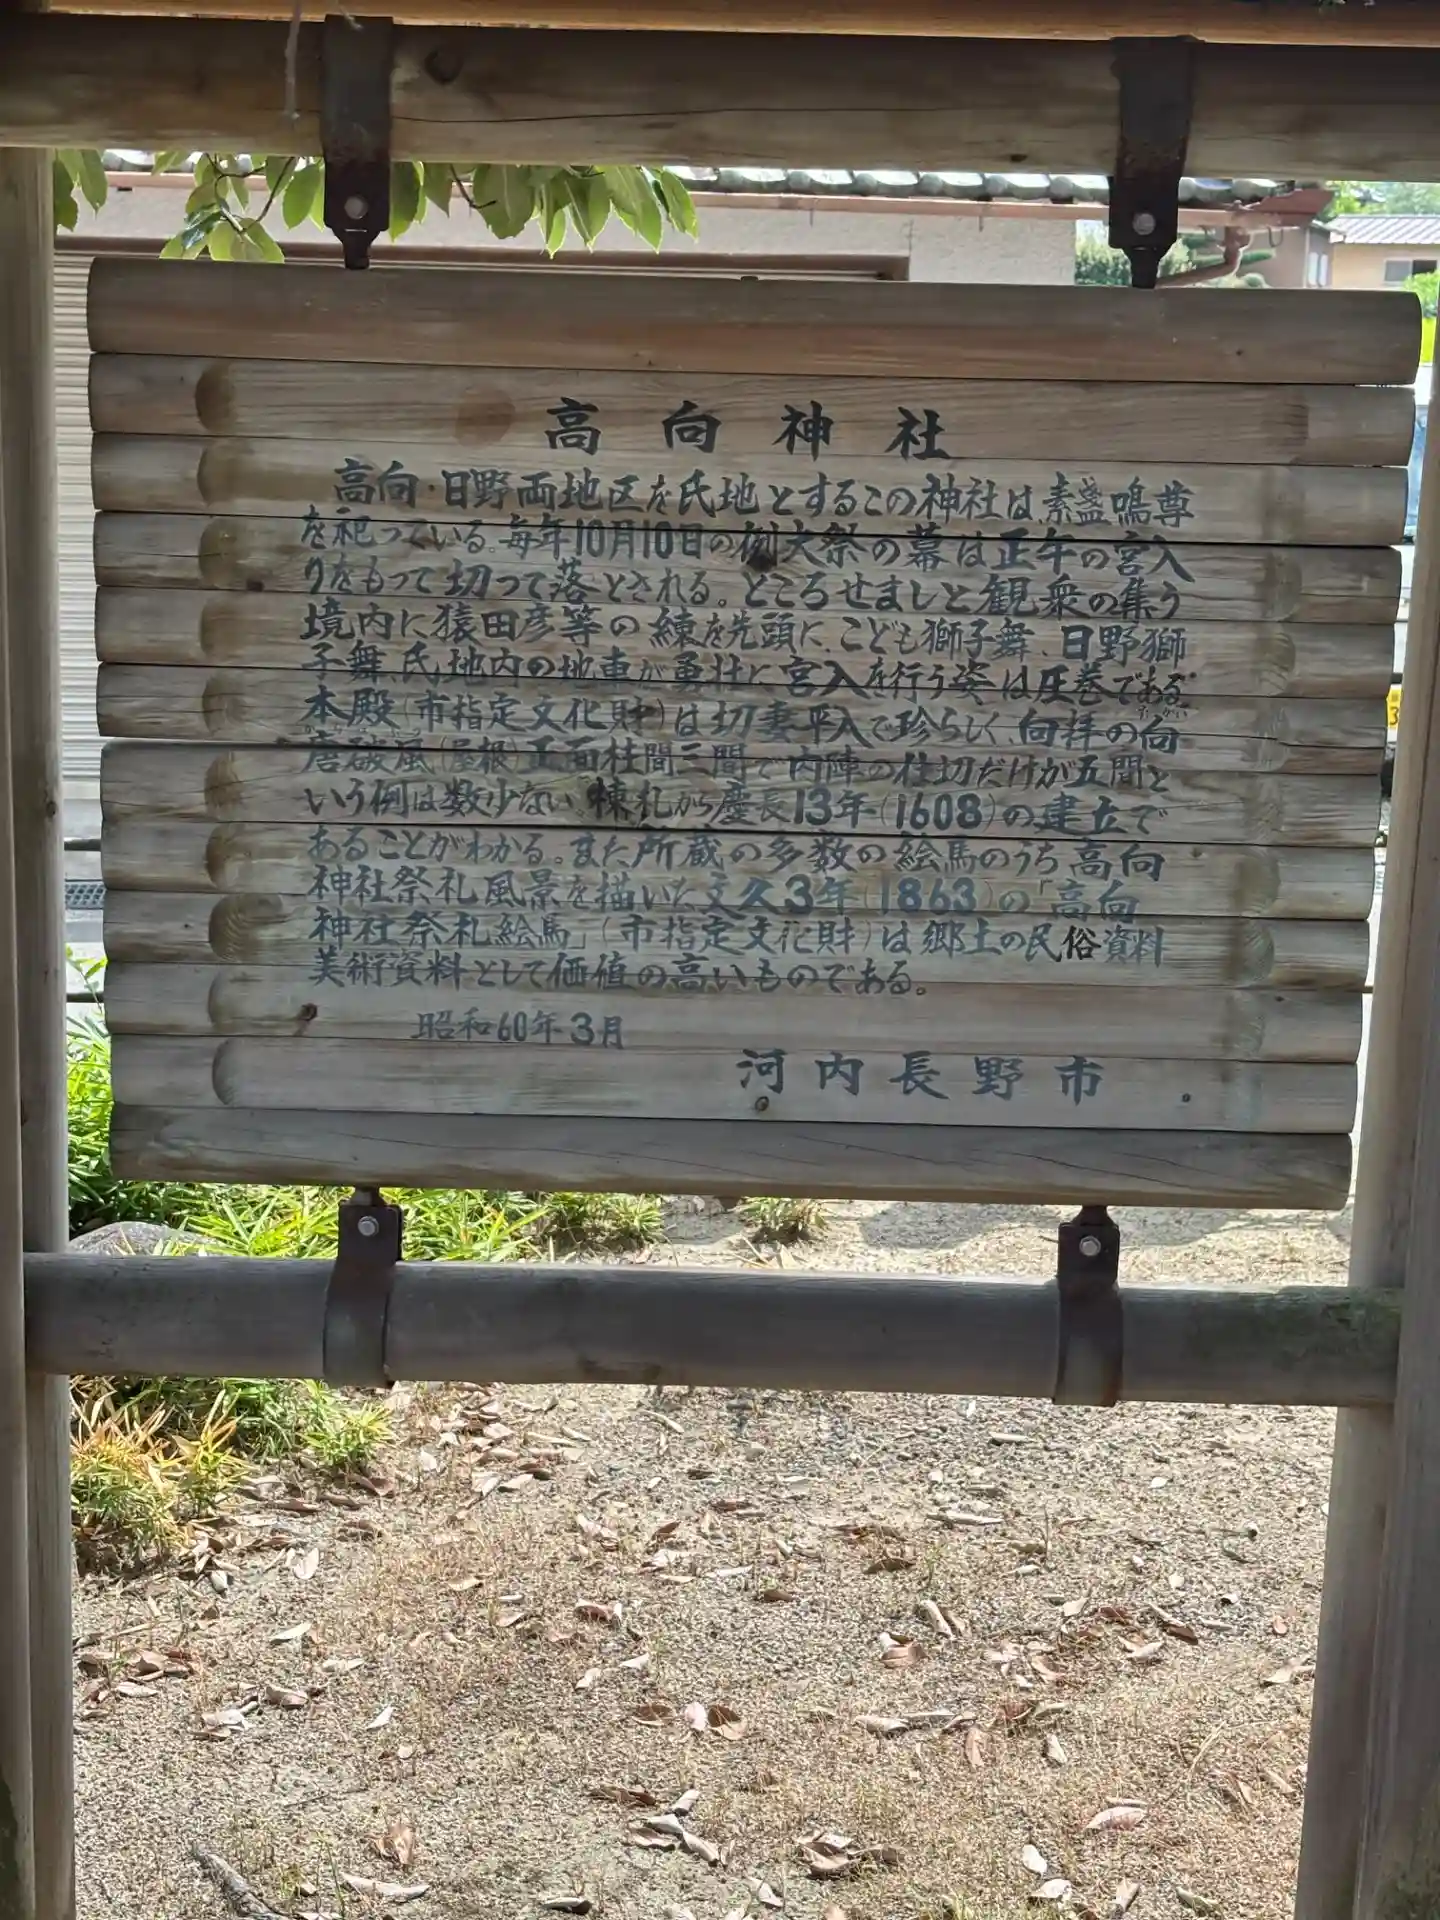 高向神社
高向・日野両地区を氏地とするこの神社は、素盞鳴尊
を祀っている。毎年10月10日の例大祭の幕は正午の宮入
りをもって切って落とされる。ところせましと観衆の集う
境内に猿田彦等の練を先頭に、こども獅子舞、日野獅
子舞、氏地内の地車が勇壮に宮入を行う姿は圧巻である。
本殿(市指定文化財)は切妻平入で珍らしく、向拝の向
唐破風(屋根)正面柱間三間で内陣の仕切だけが五間と
いう例は数少ない。棟札から慶長13年(1608)の建立で
あることがわかる。また所蔵の多数の絵馬のうち高向
神社祭礼風景を描いた文久3年(1863)の「高向
神社祭礼絵馬」(市指定文化財)は郷土の民俗資料
美術資料として価値の高いものである。
昭和60年3月
河内長野市